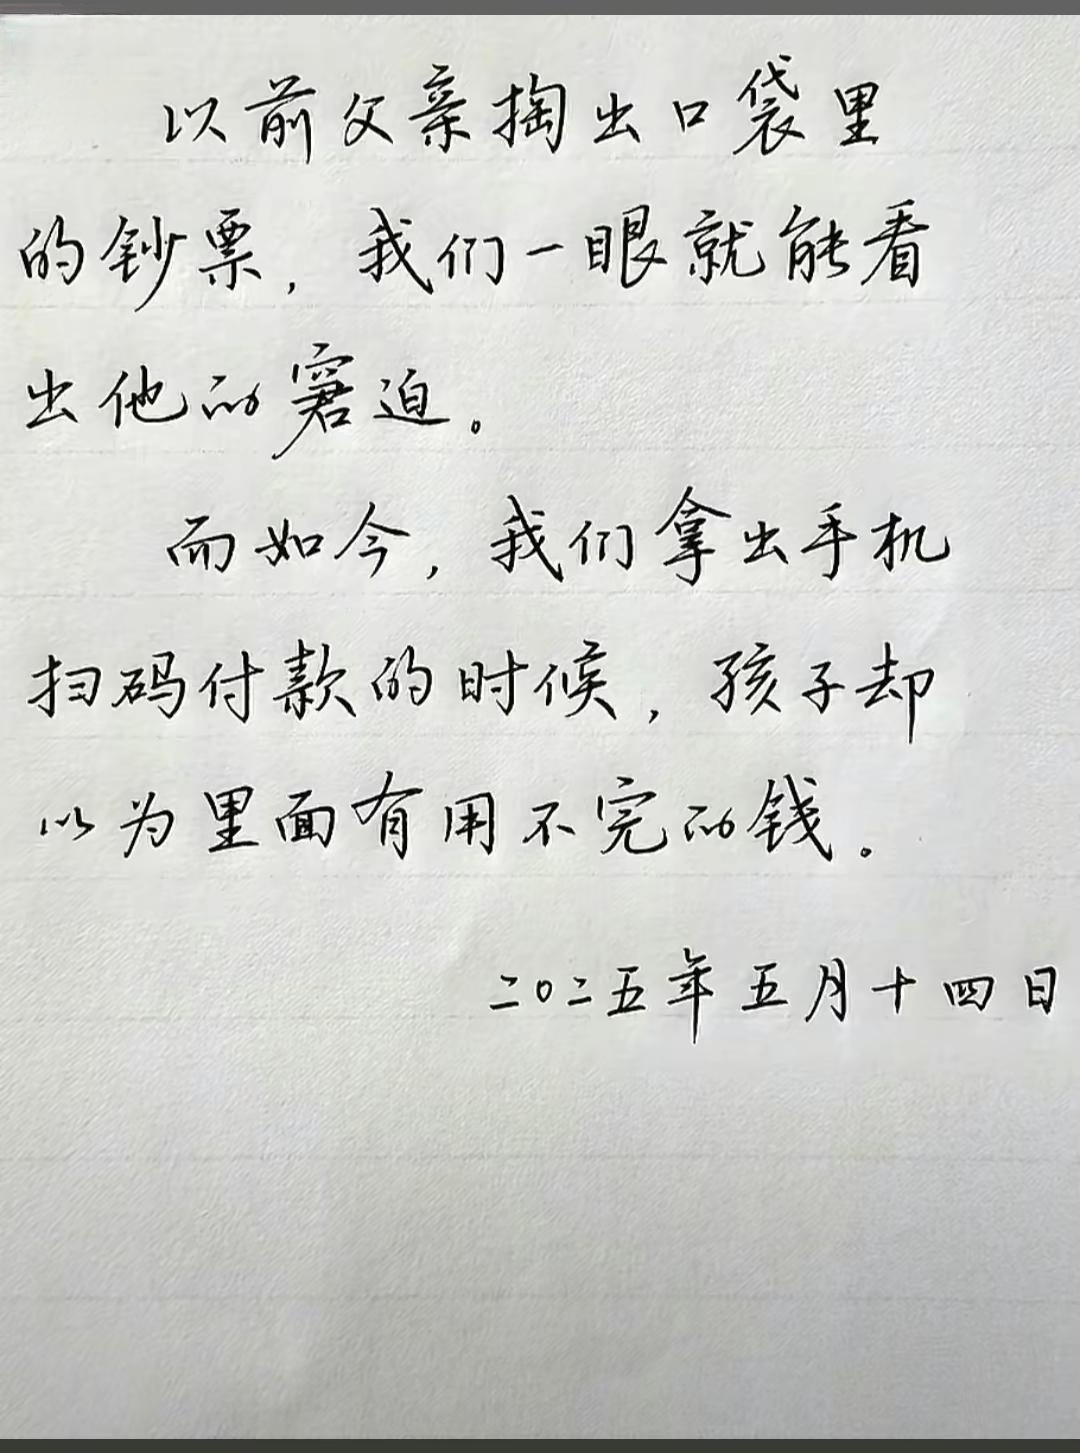 以前父亲掏出口袋里
的钞票，我们一眼就能看
出他的窘迫。
而如今，我们拿出手机
扫码付款的时候，孩子却
以为里面有用不完的钱。
二〇二五年五月十四日